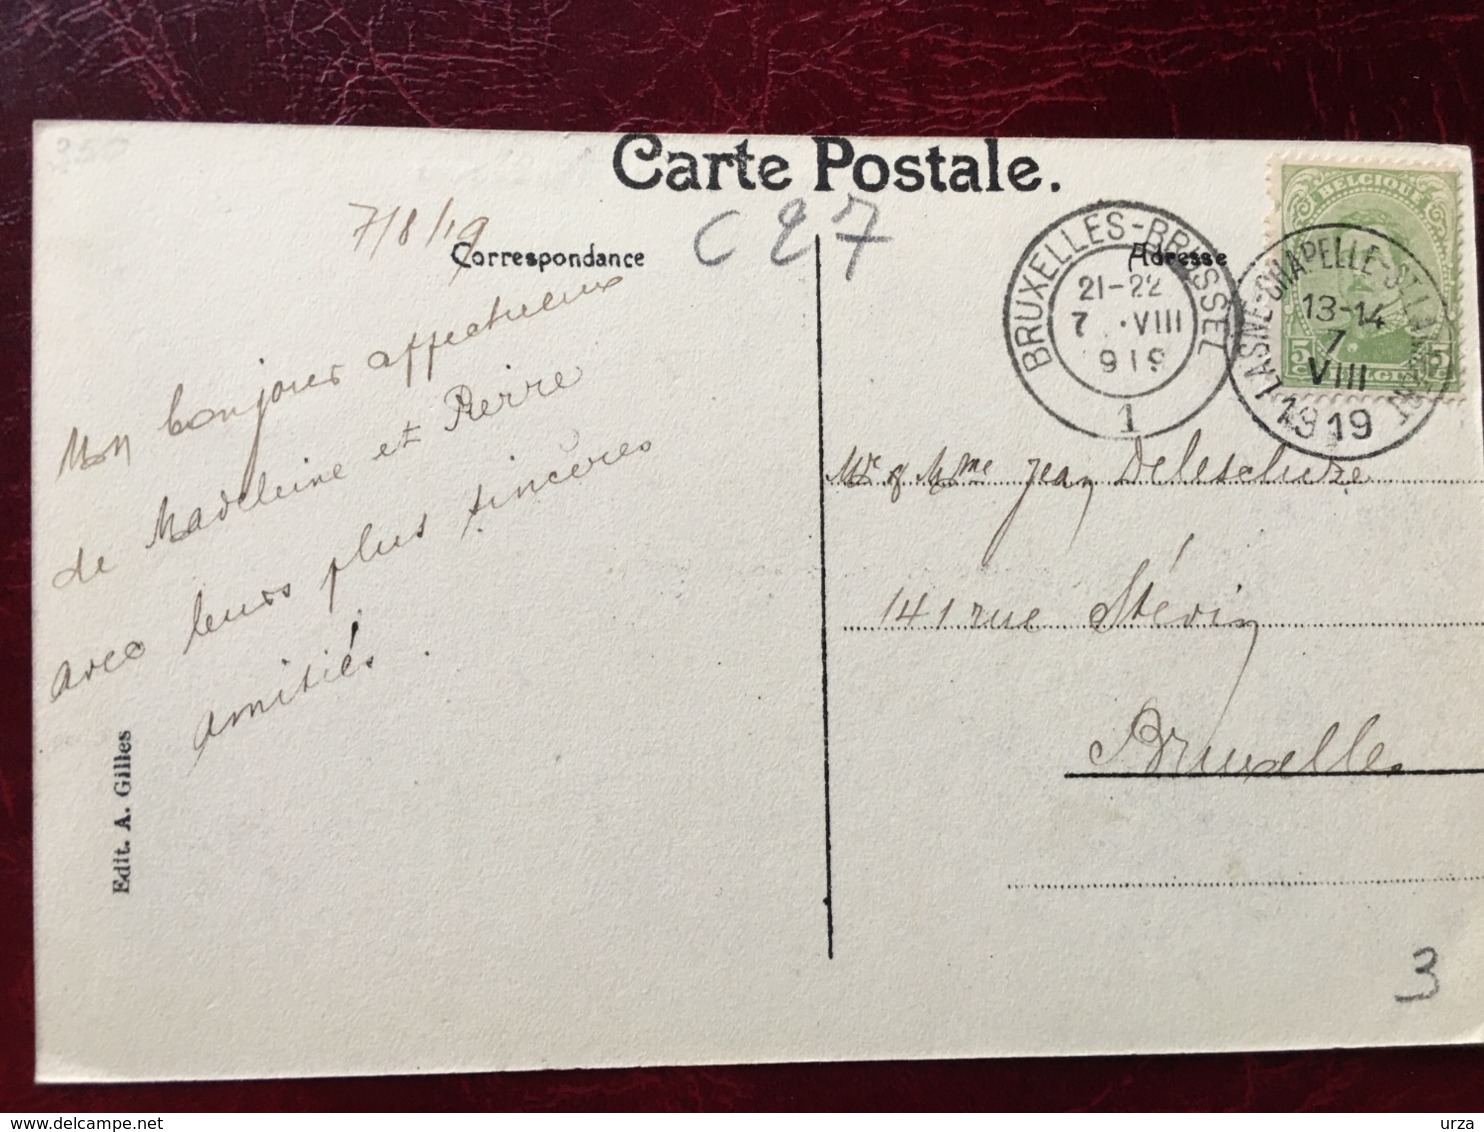 350
Carte Postale.
7/8/19
C27
Correspondance
Adresse
BELGIQUE
5 BELGIË 5
BRUXELLES-BRUSSEL
21-22
7 VIII
1919
1
LASNE-CHAPELLE-ST-LAMBERT
13-14
7
VIII
1919
Mon bonjour affectueux
de Madeleine et Pierre
avec leurs plus sincères
amitiés.
Mr & Mme Jean Delescluze
141 rue Stévin
Bruxelles
Edit. A. Gilles
3
delcampe.net
urza